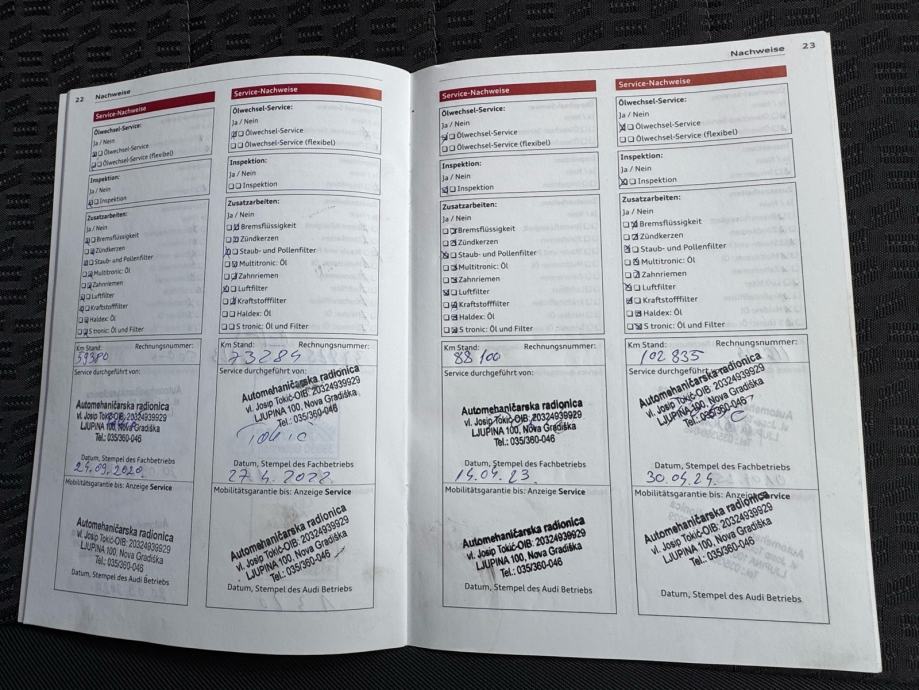 22 Nachweise
Service-Nachweise
Ölwechsel-Service:
Ja / Nein
Ölwechsel-Service
Ölwechsel-Service (flexibel)
Inspektion:
Ja / Nein
Inspektion
Zusatzarbeiten:
Ja / Nein
Bremsflüssigkeit
Zündkerzen
Staub- und Pollenfilter
Multitronic: Öl
Zahnriemen
Luftfilter
Kraftstofffilter
Haldex: Öl
S tronic: Öl und Filter
Km Stand: Rechnungsnummer:
59380
Service durchgeführt von:
Automehaničarska radionica
vl. Josip Tokić-OIB: 20324939929
LJUPINA 100, Nova Gradiška
Tel.: 035/360-046
Datum, Stempel des Fachbetriebs
24.09.2020
Mobilitätsgarantie bis: Anzeige Service
Automehaničarska radionica
vl. Josip Tokić-OIB: 20324939929
LJUPINA 100, Nova Gradiška
Tel.: 035/360-046
Datum, Stempel des Audi Betriebs
Service-Nachweise
Ölwechsel-Service:
Ja / Nein
Ölwechsel-Service
Ölwechsel-Service (flexibel)
Inspektion:
Ja / Nein
Inspektion
Zusatzarbeiten:
Ja / Nein
Bremsflüssigkeit
Zündkerzen
Staub- und Pollenfilter
Multitronic: Öl
Zahnriemen
Luftfilter
Kraftstofffilter
Haldex: Öl
S tronic: Öl und Filter
Km Stand: Rechnungsnummer:
73284
Service durchgeführt von:
Automehaničarska radionica
vl. Josip Tokić-OIB: 20324939929
LJUPINA 100, Nova Gradiška
Tel.: 035/360-046
Tokić
Datum, Stempel des Fachbetriebs
27.4.2022.
Mobilitätsgarantie bis: Anzeige Service
Automehaničarska radionica
vl. Josip Tokić-OIB: 20324939929
LJUPINA 100, Nova Gradiška
Tel.: 035/360-046
Datum, Stempel des Audi Betriebs
Nachweise 23
Service-Nachweise
Ölwechsel-Service:
Ja / Nein
Ölwechsel-Service
Ölwechsel-Service (flexibel)
Inspektion:
Ja / Nein
Inspektion
Zusatzarbeiten:
Ja / Nein
Bremsflüssigkeit
Zündkerzen
Staub- und Pollenfilter
Multitronic: Öl
Zahnriemen
Luftfilter
Kraftstofffilter
Haldex: Öl
S tronic: Öl und Filter
Km Stand: Rechnungsnummer:
88 100
Service durchgeführt von:
Automehaničarska radionica
vl. Josip Tokić-OIB: 20324939929
LJUPINA 100, Nova Gradiška
Tel.: 035/360-046
Datum, Stempel des Fachbetriebs
14.04.23.
Mobilitätsgarantie bis: Anzeige Service
Automehaničarska radionica
vl. Josip Tokić-OIB: 20324939929
LJUPINA 100, Nova Gradiška
Tel.: 035/360-046
Datum, Stempel des Audi Betriebs
Service-Nachweise
Ölwechsel-Service:
Ja / Nein
Ölwechsel-Service
Ölwechsel-Service (flexibel)
Inspektion:
Ja / Nein
Inspektion
Zusatzarbeiten:
Ja / Nein
Bremsflüssigkeit
Zündkerzen
Staub- und Pollenfilter
Multitronic: Öl
Zahnriemen
Luftfilter
Kraftstofffilter
Haldex: Öl
S tronic: Öl und Filter
Km Stand: Rechnungsnummer:
102 835
Service durchgeführt von:
Automehaničarska radionica
vl. Josip Tokić-OIB: 20324939929
LJUPINA 100, Nova Gradiška
Tel.: 035/360-046
Datum, Stempel des Fachbetriebs
30.04.24.
Mobilitätsgarantie bis: Anzeige Service
Automehaničarska radionica
vl. Josip Tokić-OIB: 20324939929
LJUPINA 100, Nova Gradiška
Tel.: 035/360-046
Datum, Stempel des Audi Betriebs